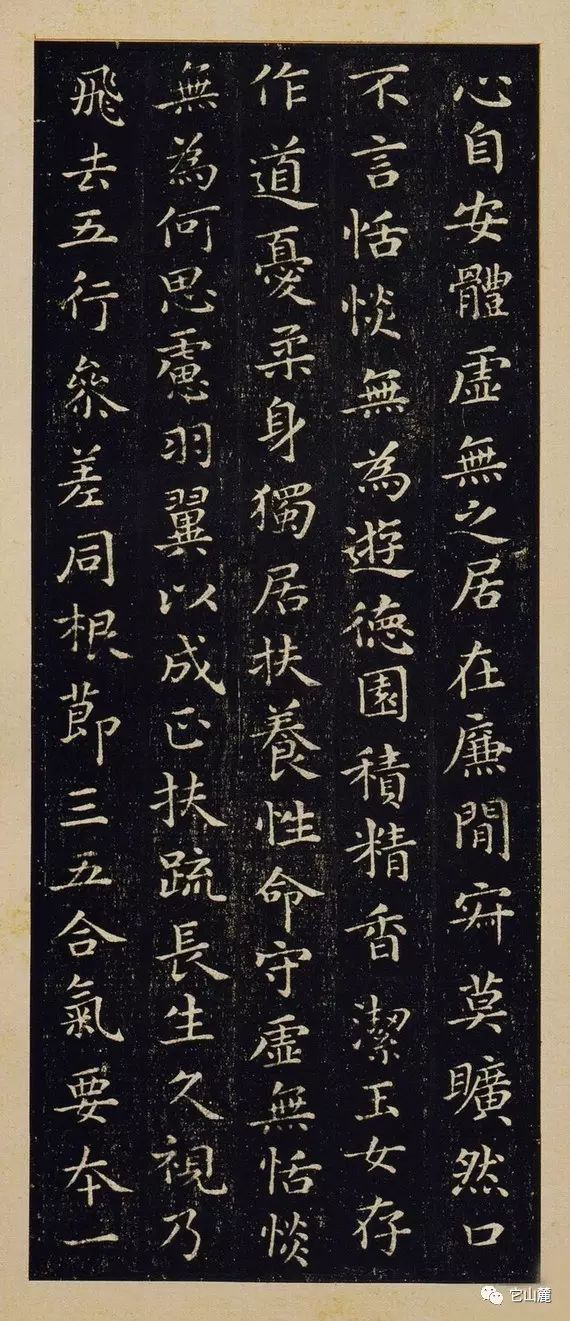 心自安體虛無之居在廉間㝥莫曠然口
不言恬惔無為遊德園積精香潔玉女存
作道憂柔身獨居扶養性命守虛無恬惔
無為何思慮羽翼以成正扶疏長生久視乃
飛去五行參差同根節三五合氣要本一
它山麓